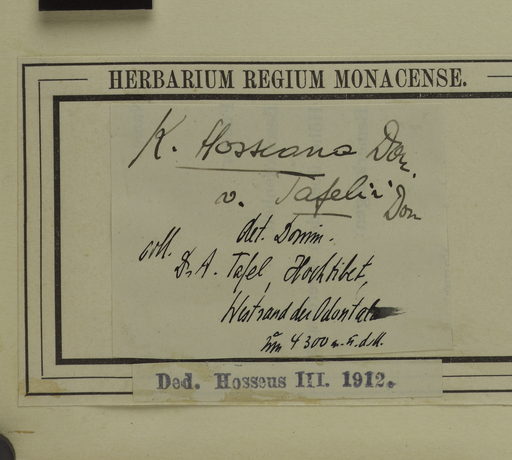 HERBARIUM REGIUM MONACENSE.
K. Hosseana Dom.
v. Tafelii Dom
det. Domin.
coll. Dr A. Tafel, Hochtibet,
Westrand der Odontala
4300 m. ü. d. M.
Ded. Hosseus III. 1912.